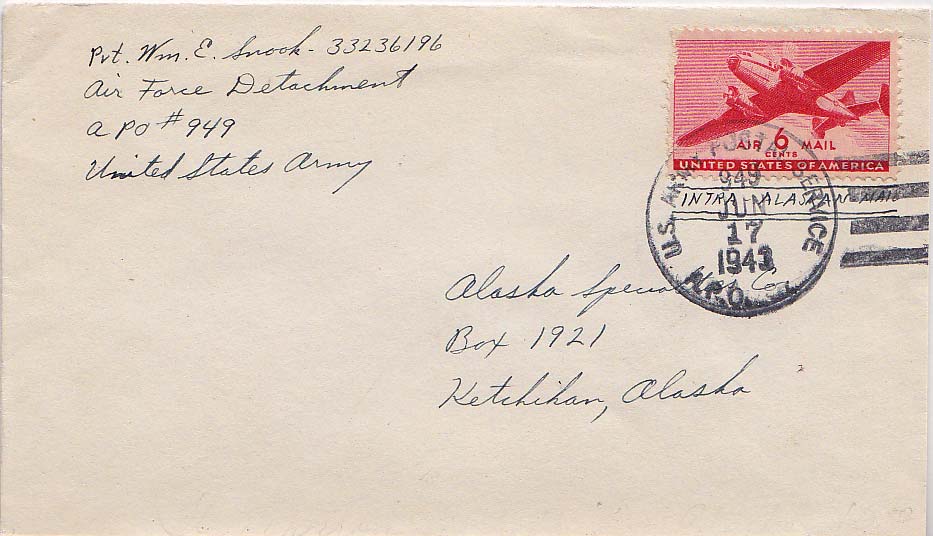 Pvt. Wm. E. Snook - 33236196
Air Force Detachment
A PO # 949
United States Army
AIR 6 MAIL
CENTS
UNITED STATES OF AMERICA
U.S. ARMY POSTAL SERVICE
949
JUN
17
1943
A.P.O.
INTRA ALASKAN MAIL
Alaska Co.
Box 1921
Ketchikan, Alaska